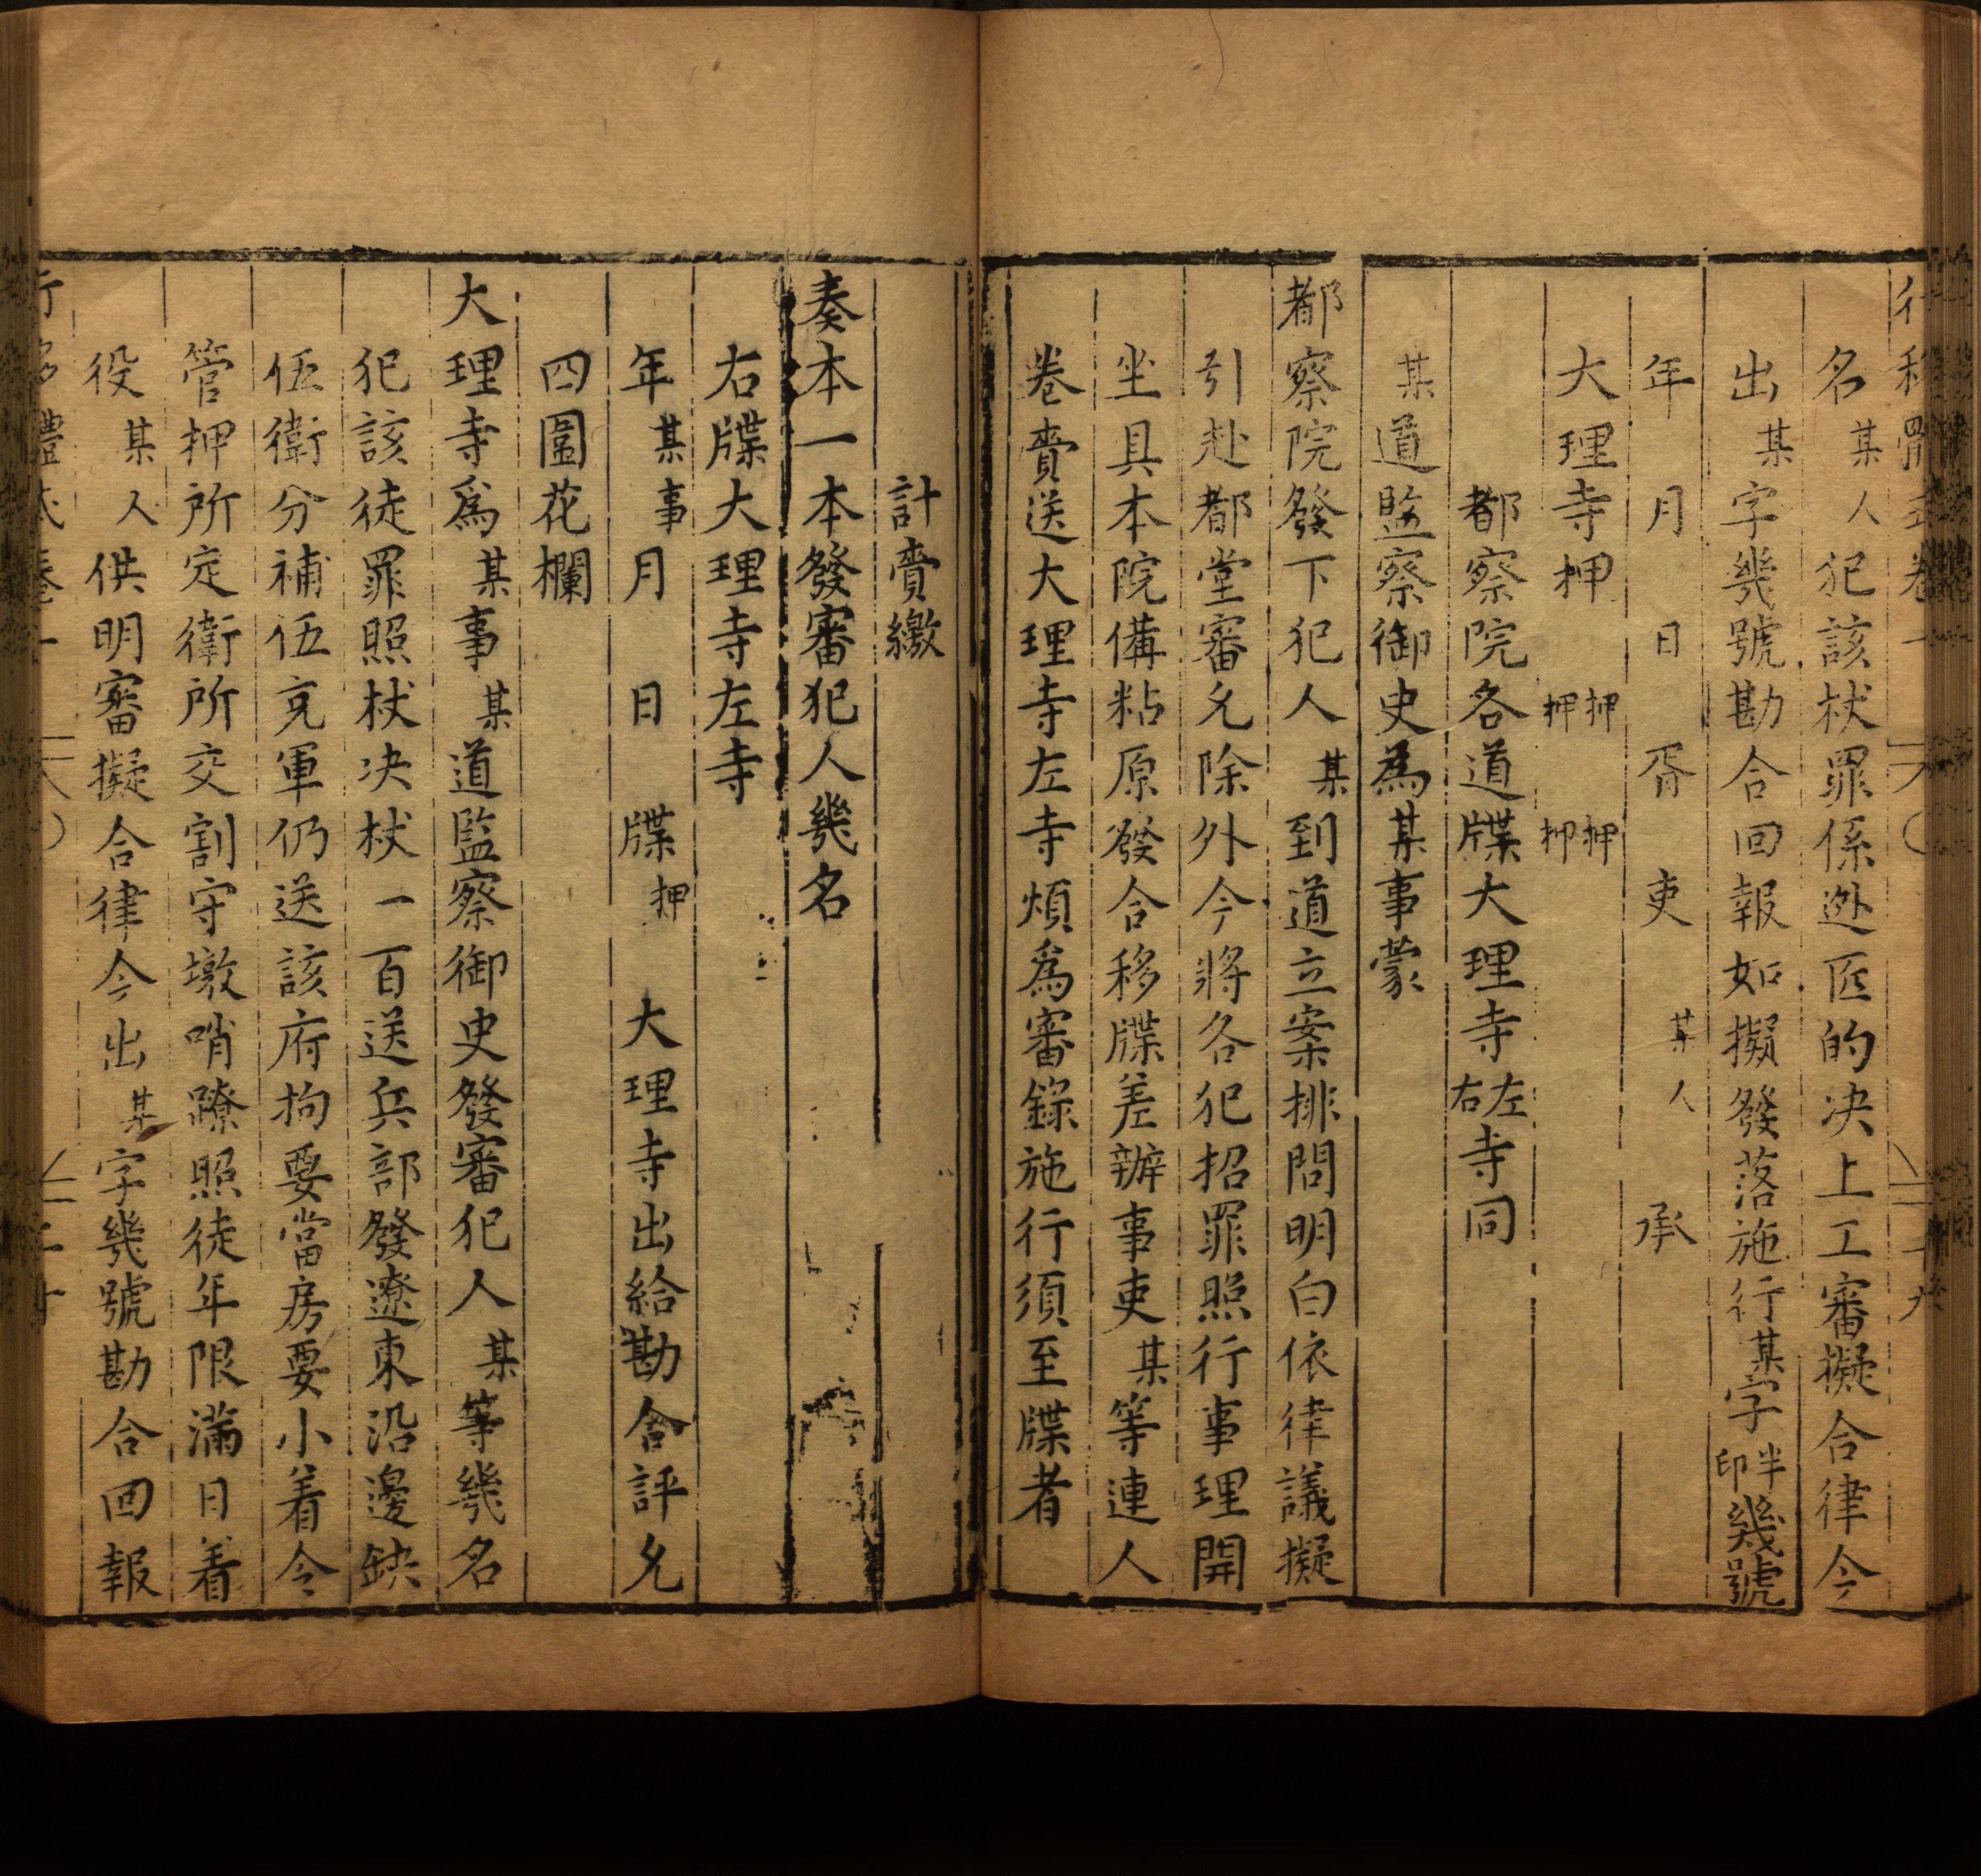 名某人犯該杖罪係逃匠的决上工審擬合律今
出某字幾號勘合回報如擬發落施行某字半印幾號
年 月 日 胥 吏 某人 承
大理寺押 押押 押押
都察院各道牒大理寺左右寺同
某道監察御史為某事蒙
都察院發下犯人某到道立案排問明白依律議擬
引赴都堂審允除外今將各犯招罪照行事理開
坐具本院備粘原發合移牒差辦事吏某等連人
卷賫送大理寺左寺煩為審錄施行須至牒者
計賫繳
奏本一本發審犯人幾名
右牒大理寺左寺
年某事月 日 牒押 大理寺出給勘合評允
四圍花欄
大理寺爲某事某道監察御史發審犯人某等幾名
犯該徒罪照杖决杖一百送兵部發遼東沿邊缺
伍衛分補伍充軍仍送該府拘要當房要小着令
管押所定衛所交割守墩哨瞭照徒年限滿日着
役某人供明審擬合律今出某字幾號勘合回報